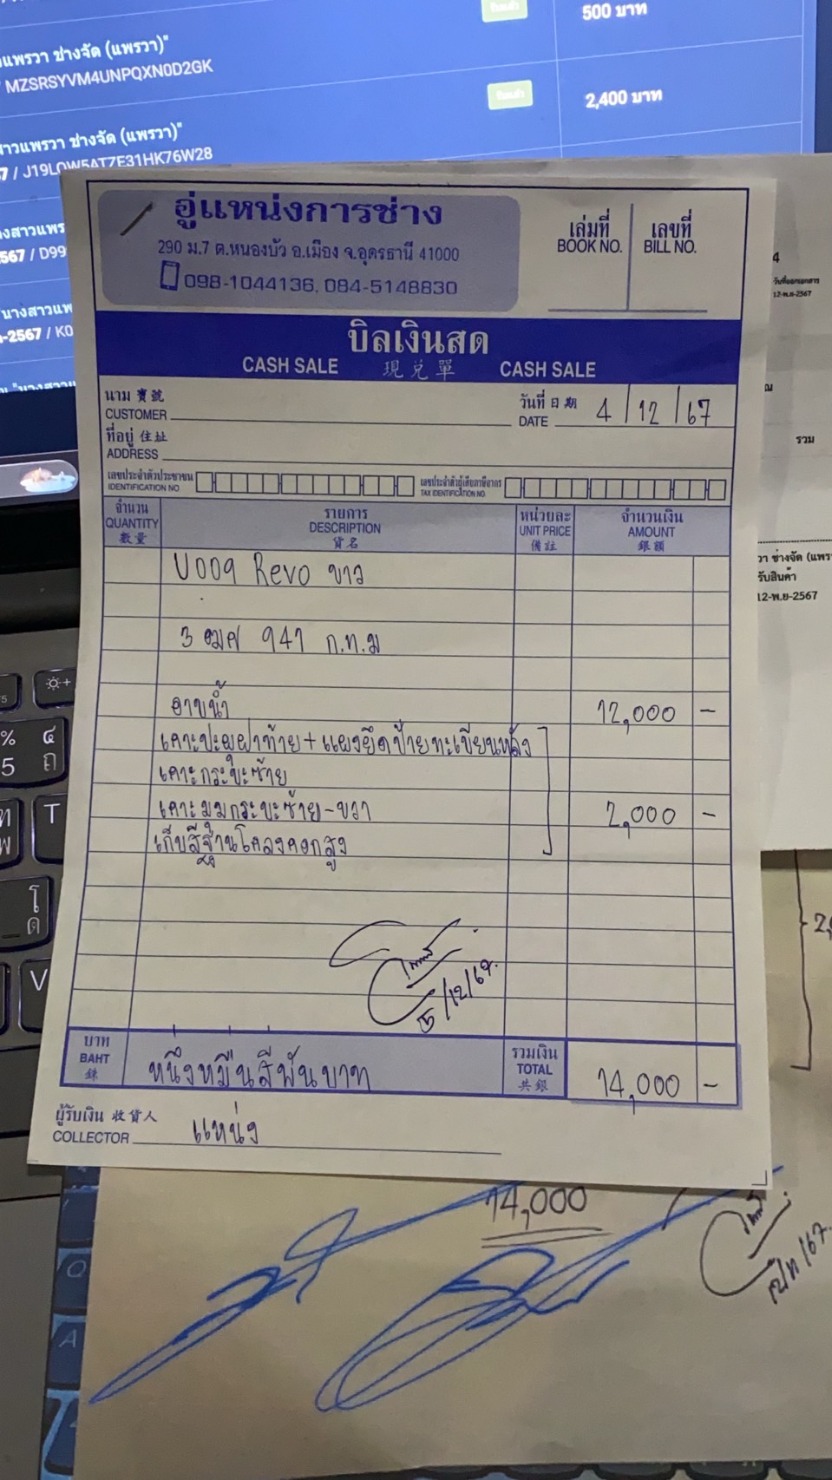 500 บาท
แพรวา ช่างจัด (แพรวา)"
MZSRSYVM4UNPQXN0D2GK
2,400 บาท
สาวแพรวา ช่างจัด (แพรวา)"
7 / J19LOW5AT7E31HK76W28
งสาวแพร
567 / D99
นางสาวแพ
-2567 / K0
อู่แหน่งการช่าง
290 ม.7 ต.หนองบัว อ.เมือง จ.อุดรธานี 41000
098-1044136, 084-5148830
เล่มที่ เลขที่
BOOK NO. BILL NO.
บิลเงินสด
CASH SALE 現兌單 CASH SALE
นาม 寶號
CUSTOMER
วันที่ 日期
DATE 4/12/67
ที่อยู่ 住址
ADDRESS
เลขประจำตัวประชาชน
IDENTIFICATION NO
เลขประจำตัวผู้เสียภาษีอากร
TAX IDENTIFICATION NO.
จำนวน รายการ หน่วยละ จำนวนเงิน
QUANTITY DESCRIPTION UNIT PRICE AMOUNT
數量 貨名 備註 銀額
U009 Revo ขาว
3 ฒศ 941 ก.ท.ม
อาบน้ำ 12,000 -
เคาะปะผุฝาท้าย+แผงยึดป้ายทะเบียนหลัง
เคาะกระบะซ้าย
เคาะมุมกระบะซ้าย-ขวา 2,000 -
เก็บสีฐานโครงคอกสูง
5/12/67.
บาท หนึ่งหมื่นสี่พันบาท รวมเงิน
BAHT TOTAL 14,000 -
銖 共銀
ผู้รับเงิน 收貨人
COLLECTOR แหน่ง
14,000
4
วันที่ออกเอกสาร
12-พ.ย-2567
รวม
วา ช่างจัด (แพร
รับสินค้า
12-พ.ย-2567